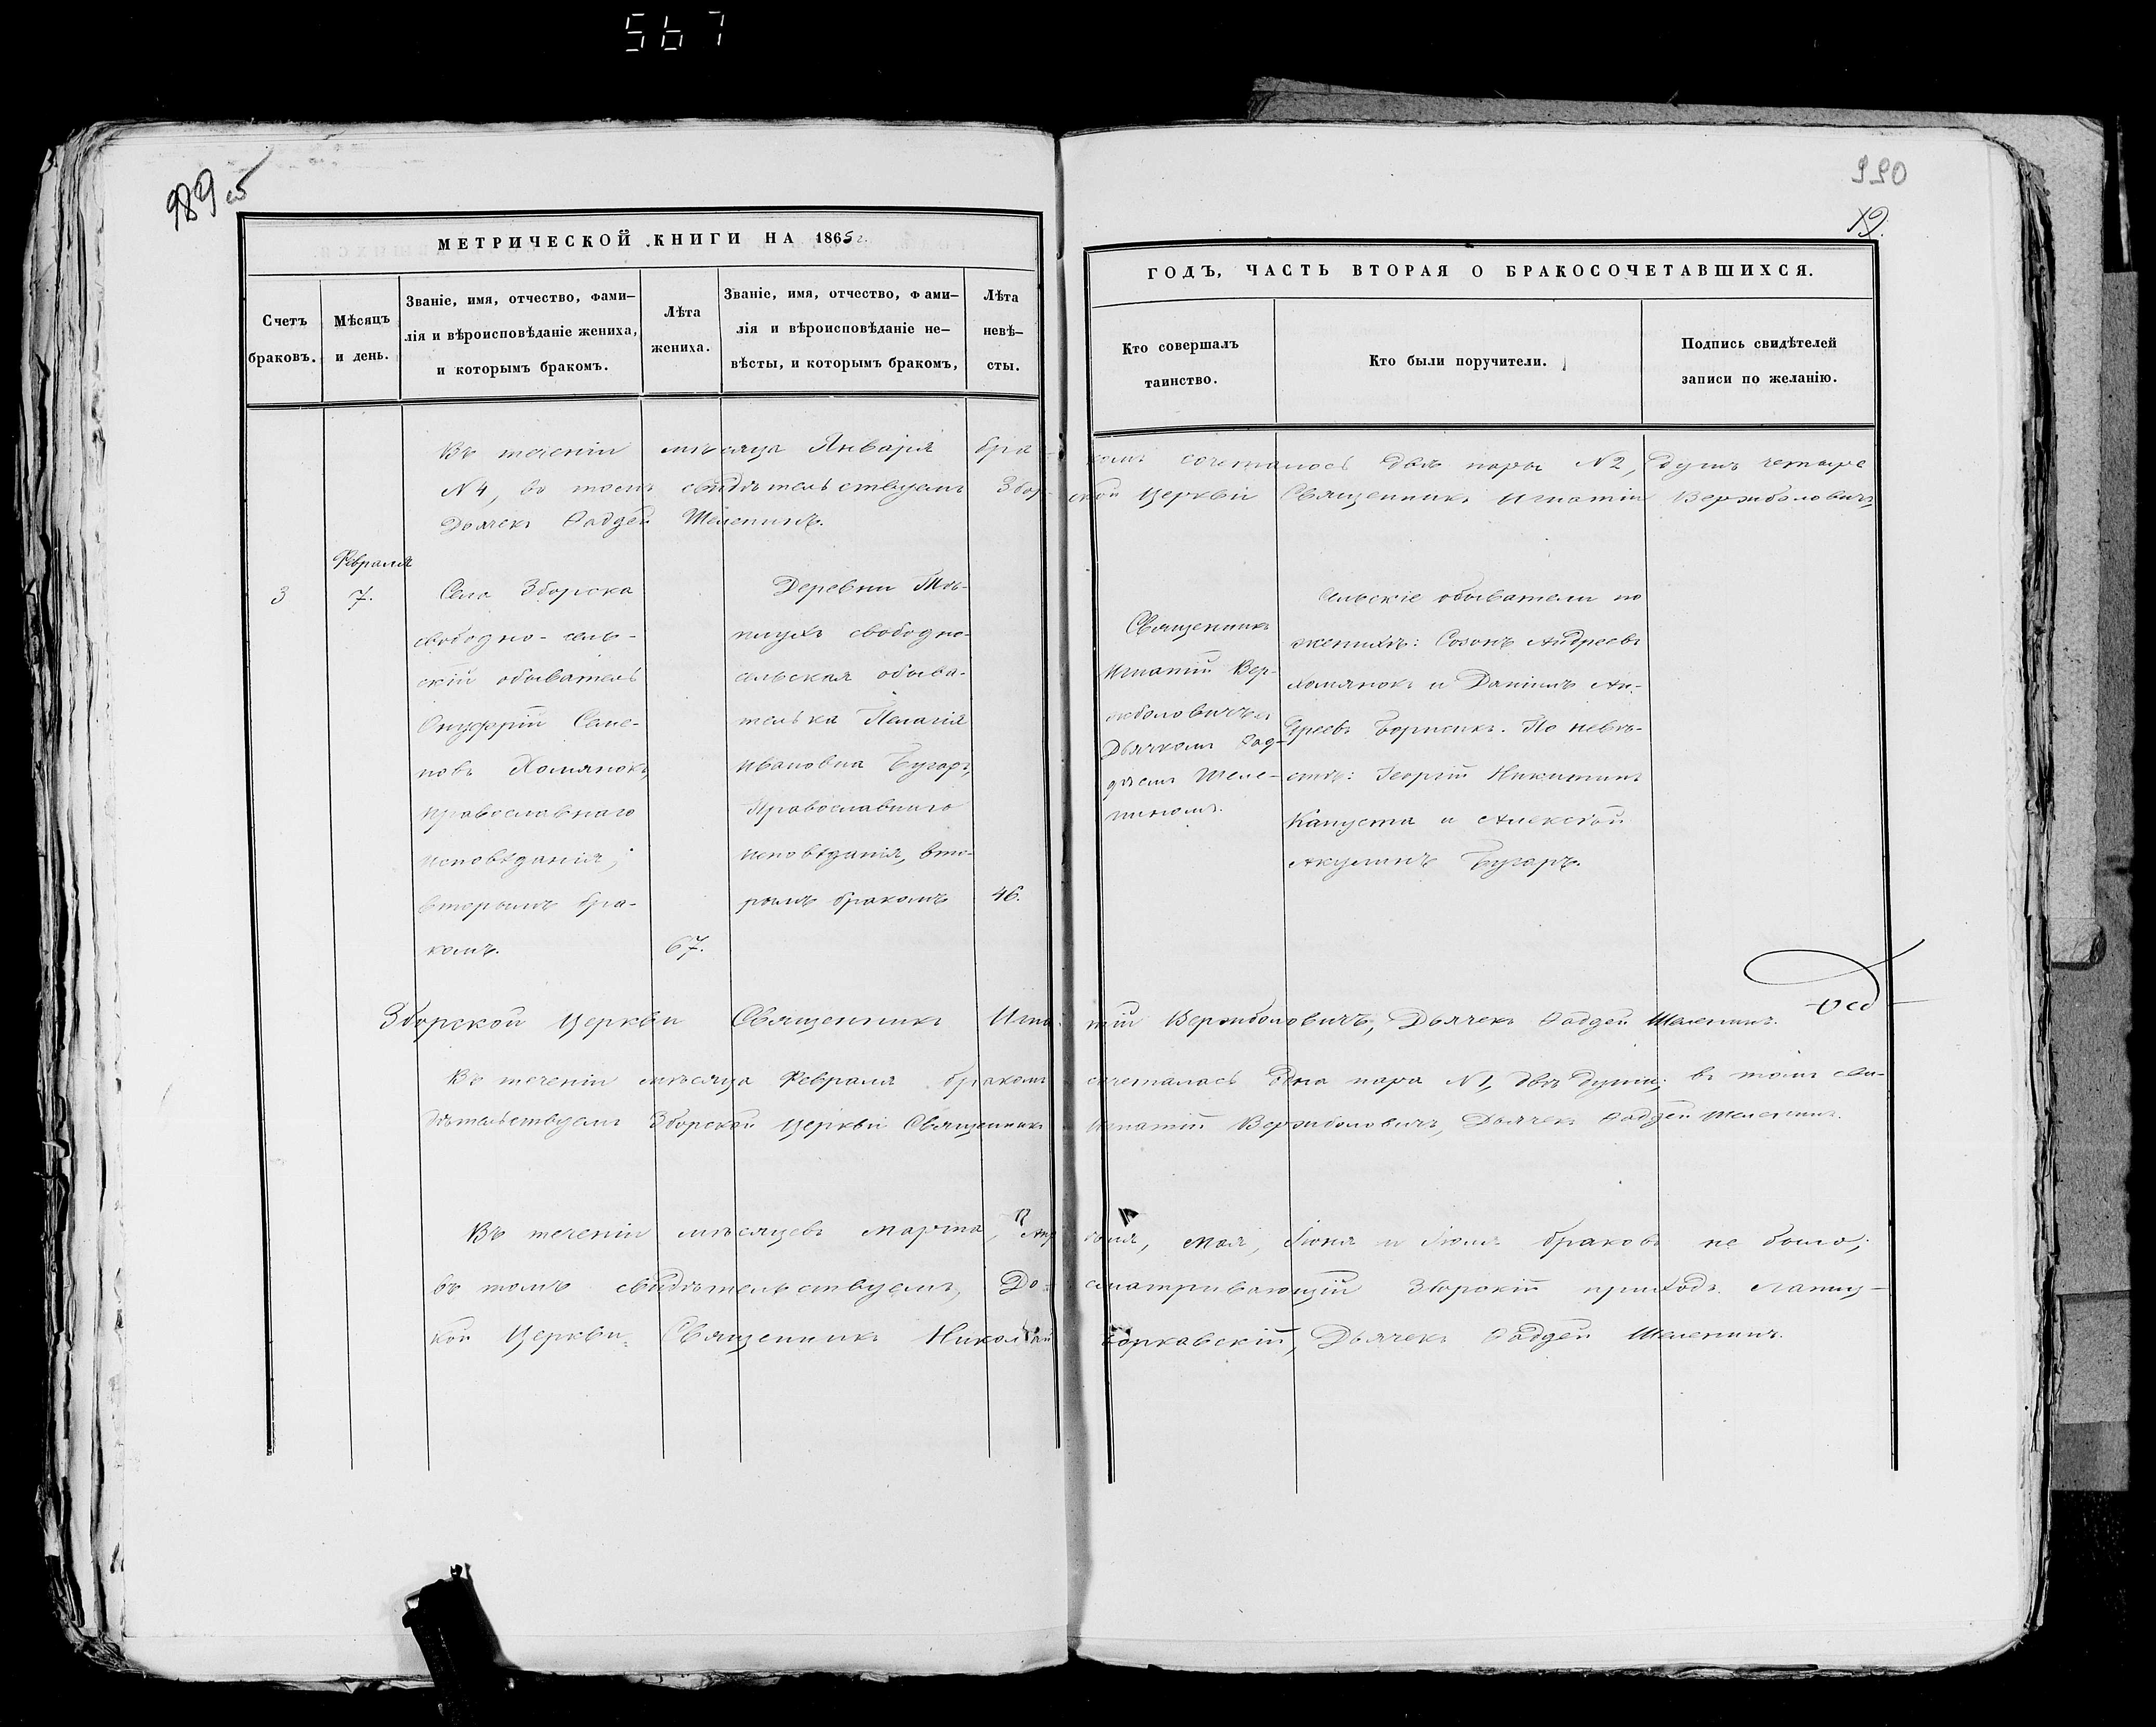 567
989 об
990
19.
МЕТРИЧЕСКОЙ КНИГИ НА 1865 г.
ГОДЪ, ЧАСТЬ ВТОРАЯ О БРАКОСОЧЕТАВШИХСЯ.
Счетъ
браковъ.
Мѣсяцъ
и день.
Званіе, имя, отчество, фами-
лія и вѣроисповѣданіе жениха,
и которымъ бракомъ.
Лѣта
жениха.
Званіе, имя, отчество, фами-
лія и вѣроисповѣданіе не-
вѣсты, и которымъ бракомъ,
Лѣта
невѣ-
сты.
Кто совершалъ
таинство.
Кто были поручители.
Подпись свидѣтелей
записи по желанію.
Въ теченіи мѣсяца Января бра-комъ сочеталось двѣ пары N 2, душъ четыре
N 4, въ томъ свидѣтельствуемъ Збор-ской Церкви Священникъ Игнатій Вержболовичъ,
Дьячекъ Фадѣй Шелепинъ.
3
Февраля
7.
Села Зборска
свободно-сель-
скій обыватель
Онуфрій Семе-
новъ Хомянокъ,
православнаго
исповѣданія,
вторымъ бра-
комъ.
67.
Деревни
свободно-
сельская обыва-
телька Пелагія
Ивановна Бугаръ,
Православнаго
исповѣданія, вто-
рымъ бракомъ
46.
Священникъ
Игнатій Вер-
жболовичъ съ
Дьячкомъ Фад-
дѣемъ Шеле-
пиномъ.
Сельскіе обыватели по
женихѣ: Созонъ Андреевъ
Хомянокъ и Даніилъ Ан-
дреевъ Борисикъ. По невѣ-
стѣ: Георгій Никитинъ
Капуста и Алексѣй
Акулинъ Бугаръ.
Зборской Церкви Священникъ Игна-тій Вержболовичъ, Дьячекъ Фадѣй Шелепинъ.
Въ теченіи мѣсяца Февраля бракомъ сочеталась одна пара N 1, двѣ души; въ томъ сви-
дѣтельствуемъ Зборской Церкви Священникъ Игнатій Вержболовичъ, Дьячекъ Фадѣй Шелепинъ.
Въ теченіи мѣсяцевъ Марта, Апрѣля, Мая, Іюня и Іюля браковъ не было;
въ томъ свидѣтельствуемъ, До-сматривающій Зборскій приходъ
кой Церкви Священникъ Николай Борковскій, Дьячекъ Фадѣй Шелепинъ.